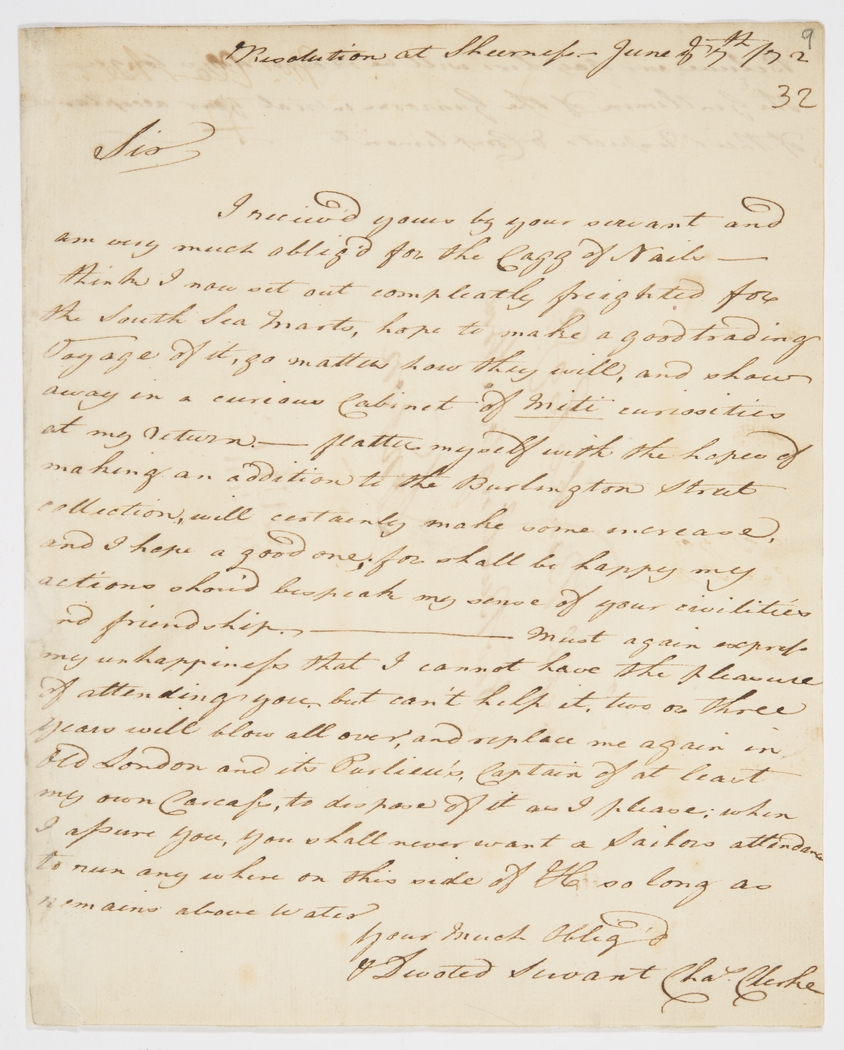 9
Resolution at Sheerness - June 7th 1772
32
Sir
I receiv'd yours by your servant and
am very much oblig'd for the Cagg of Nails —
think I now set out compleatly freighted for
the South Sea Marts, hope to make a good trading
Voyage of it, go matters how they will, and show
away in a curious Cabinet of Miti curiosities
at my return. — flatter myself with the hopes of
making an addition to the Burlington Street
collection, will certainly make some increase,
and I hope a good one, for shall be happy my
actions shou'd bespeak my sense of your civilities
nd friendship. — Must again express
my unhappiness that I cannot have the pleasure
of attending you, but can't help it, two or three
years will blow all over, and replace me again in
Old London and its Purlieu's, Captain of at least
my own Carcass, to dispose of it as I please; when
I assure you, you shall never want a Sailors attendance
to run any where on this side of H so long as
remains above Water
Your Much Oblig'd
& Devoted Servant Chas. Clerke